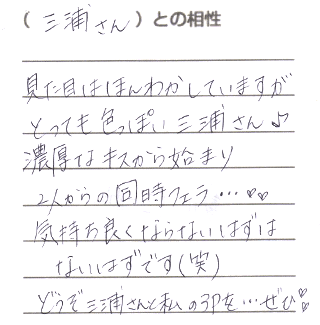 (三浦さん)との相性
見た目はほんわかしていますが
とっても色っぽい三浦さん♪
濃厚なキスから始まり
2人からの同時フェラ…♡♡
気持ち良くならないはずは
ないはずです(笑)
どうぞ三浦さんと私の3Pを…ぜひ♡♡